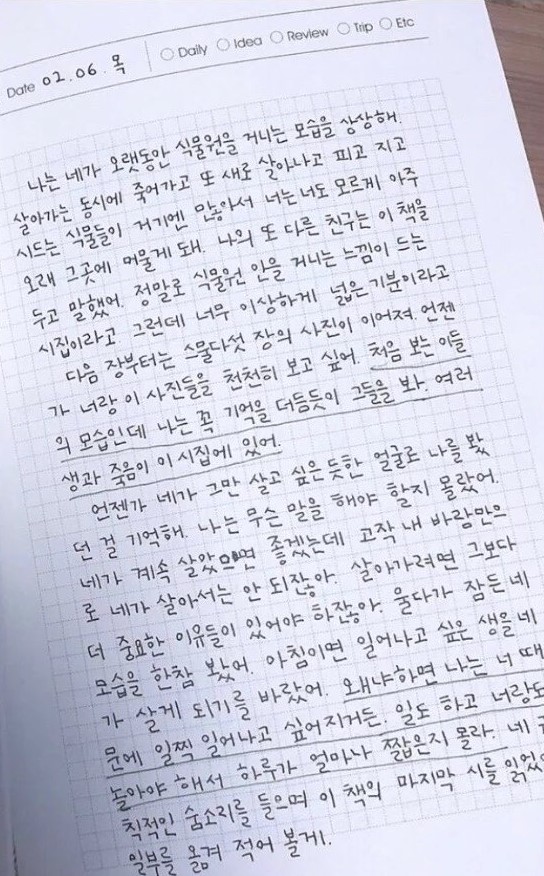 Date 02.06.목 Daily Idea Review Trip Etc
나는 네가 오랫동안 식물원을 거니는 모습을 상상해.
살아가는 동시에 죽어가고 또 새로 살아나고 피고 지고
시드는 식물들이 거기엔 많아서 너는 너도 모르게 아주
오래 그곳에 머물게 돼. 나의 또 다른 친구는 이 책을
두고 말했어. 정말로 식물원 안을 거니는 느낌이 드는
시집이라고 그런데 너무 이상하게 넓은 기분이라고
다음 장부터는 스물다섯 장의 사진이 이어져. 언젠
가 너랑 이 사진들을 천천히 보고 싶어. 처음 보는 이들
의 모습인데 나는 꼭 기억을 더듬듯이 그들을 봐. 여러
생과 죽음이 이 시집에 있어.
언젠가 네가 그만 살고 싶은 듯한 얼굴로 나를 봤
던 걸 기억해. 나는 무슨 말을 해야 할지 몰랐어.
네가 계속 살았으면 좋겠는데 고작 내 바람만으
로 네가 살아서는 안 되잖아. 살아가려면 그보다
더 중요한 이유들이 있어야 하잖아. 울다가 잠든 네
모습을 한참 봤어. 아침이면 일어나고 싶은 생을 네
가 살게 되기를 바랐어. 왜냐하면 나는 너 때
문에 일찍 일어나고 싶어지거든. 일도 하고 너랑도
놀아야 해서 하루가 얼마나 짧은지 몰라. 네
칙적인 숨소리를 들으며 이 책의 마지막 시를 읽었
일부를 옮겨 적어 볼게.